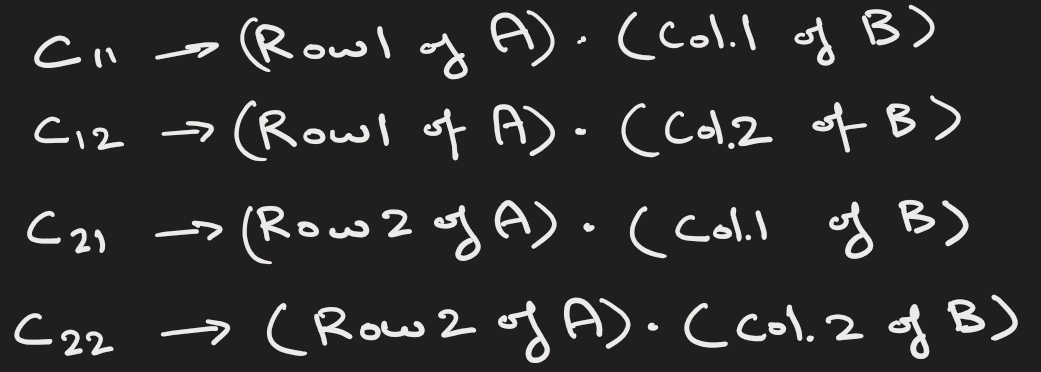 C₁₁ → (Row1 of A) · (Col.1 of B)
C₁₂ → (Row1 of A) · (Col.2 of B)
C₂₁ → (Row2 of A) · (Col.1 of B)
C₂₂ → (Row2 of A) · (Col.2 of B)